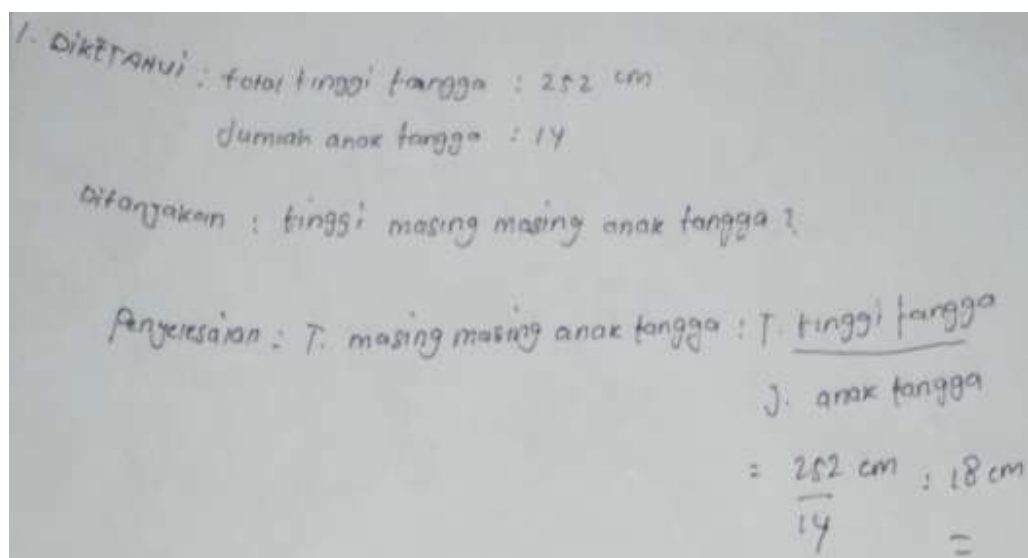 1. DIKETAHUI : total tinggi tangga : 252 cm
Jumlah anak tangga : 14
Ditanyakan : tinggi masing masing anak tangga ?
Penyelesaian : T. masing masing anak tangga : T. tinggi tangga
J. anak tangga
= 252 cm : 18 cm
14 =